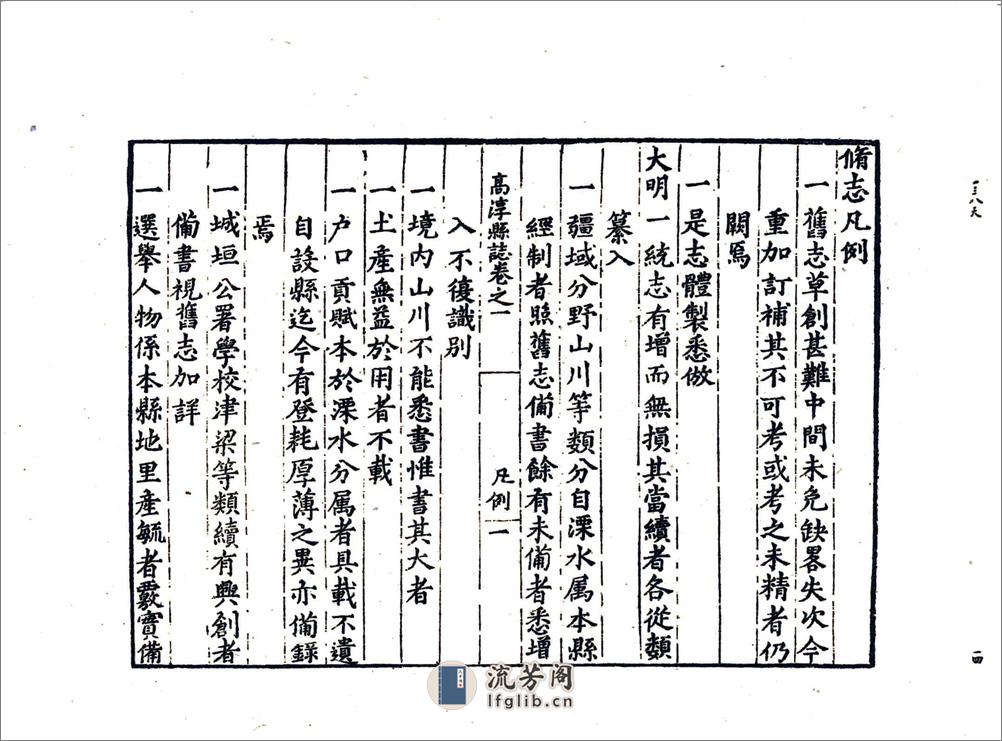 脩志凡例
一舊志草創甚難中間未免缺畧失次今
重加訂補其不可考或考之未精者仍
闕焉
一是志體製悉倣
大明一統志有增而無損其當續者各從類
纂入
一疆域分野山川等類分自溧水属本縣
經制者照舊志備書餘有未備者悉增
高淳縣誌卷之一
凡例
一
入不復識別
一境内山川不能悉書惟書其大者
一土産無益於用者不載
一户口貢賦本於溧水分属者具載不遺
自設縣迄今有登耗厚薄之異亦備錄
焉
一城垣公署學校津梁等類續有興創者
備書視舊志加詳
一選舉人物係本縣地里産毓者覈實備
一三八六
一四
流芳阁
lfglib.cn